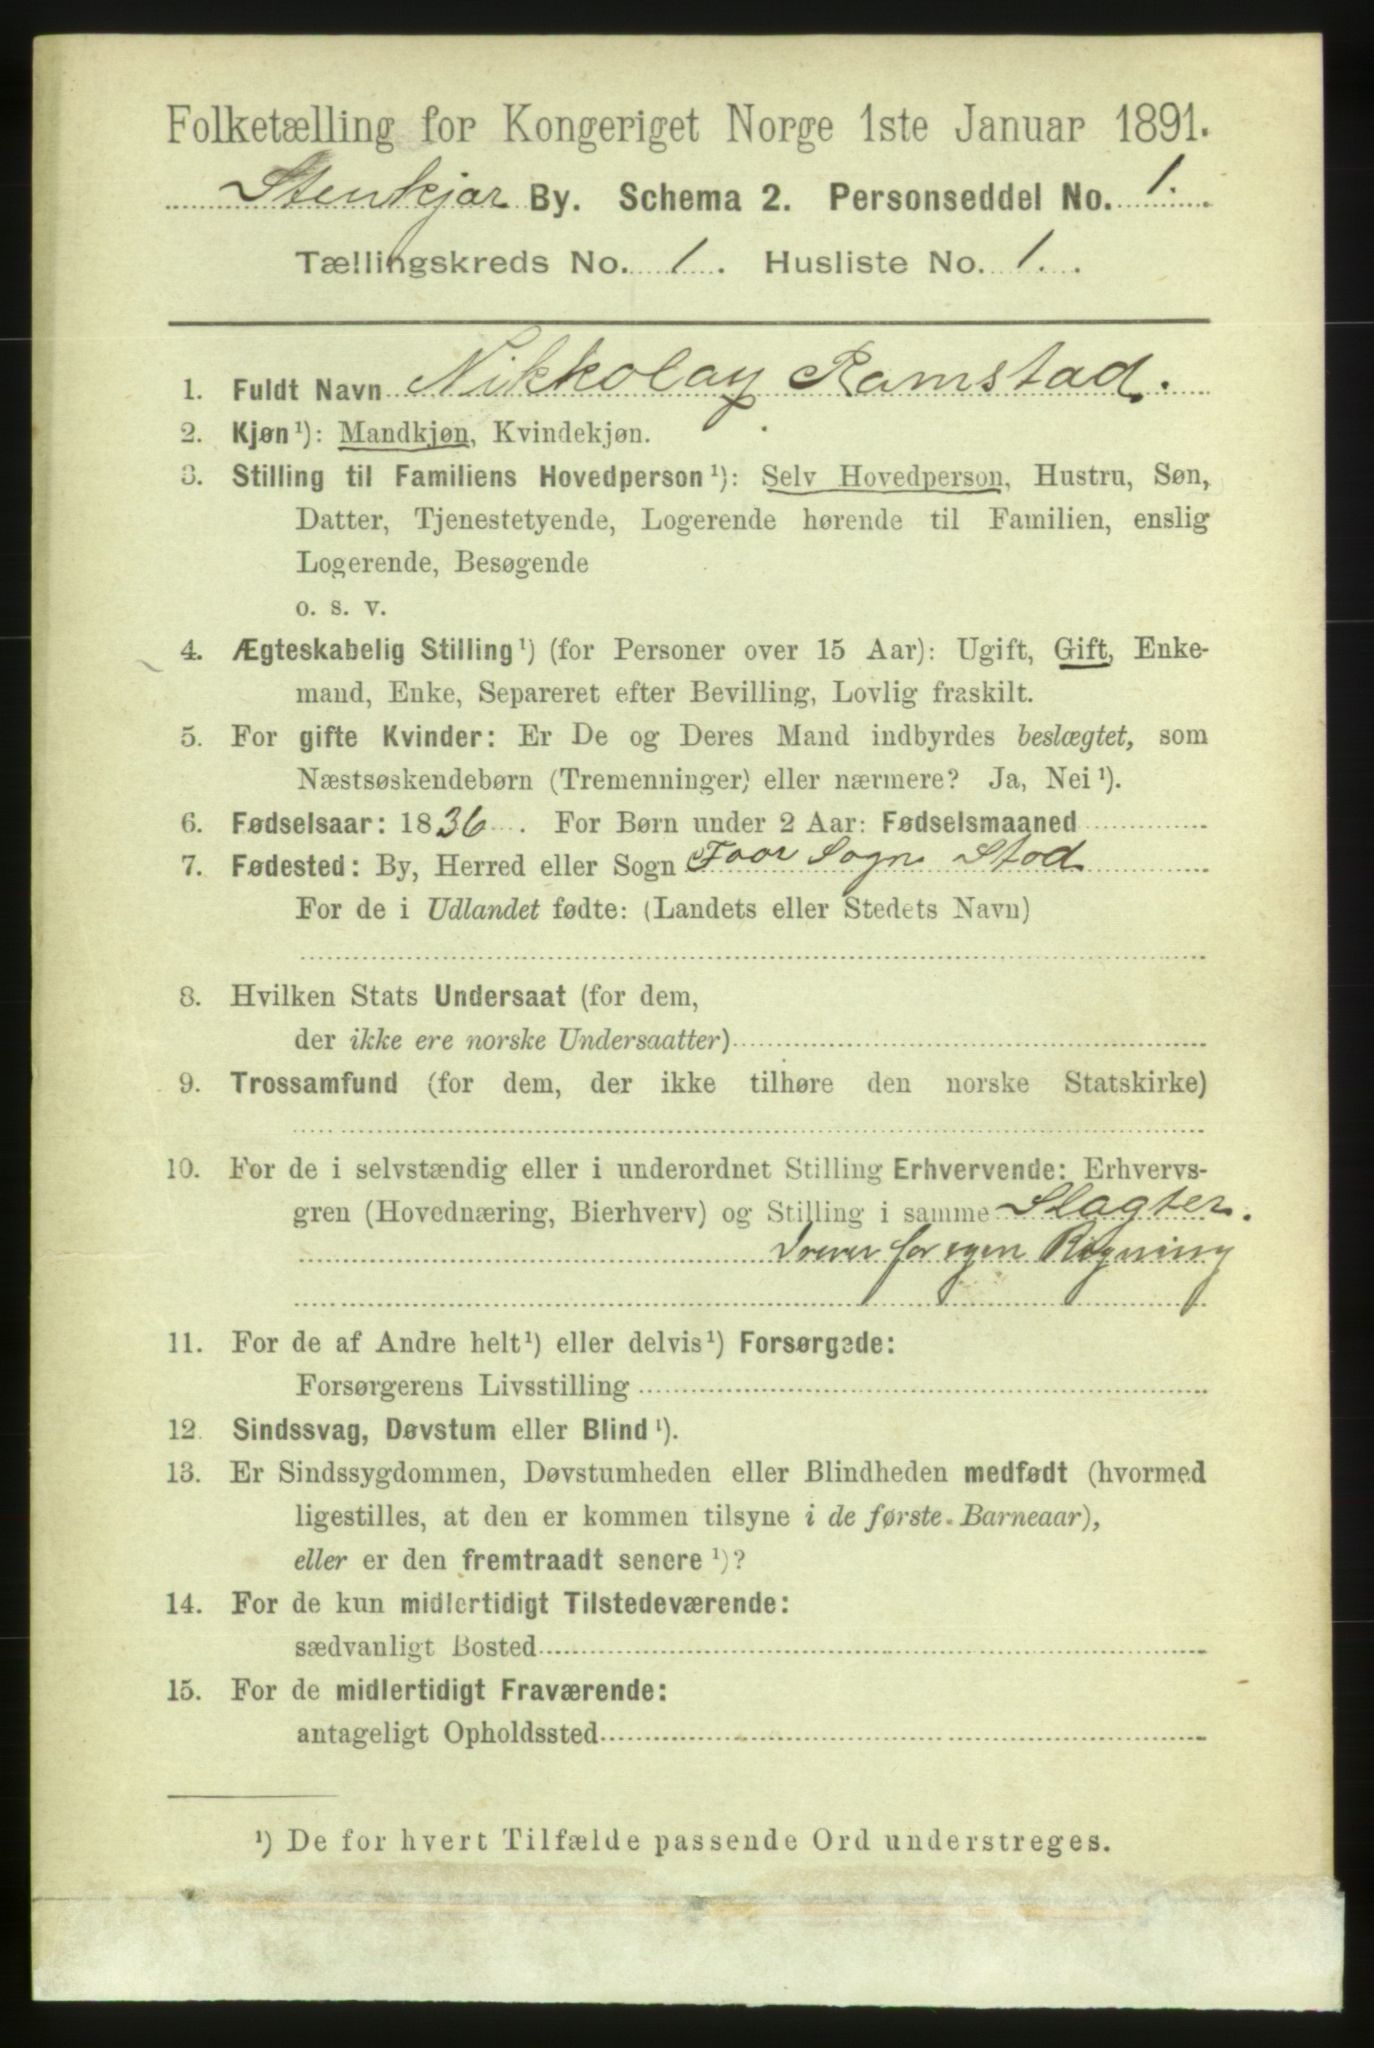 Folketælling for Kongeriget Norge 1ste Januar 1891.
Stenkjær By. Schema 2. Personseddel No. 1.
Tællingskreds No. 1. Husliste No. 1.
1. Fuldt Navn Nikkolay Ramstad.
2. Kjøn¹): Mandkjøn, Kvindekjøn.
3. Stilling til Familiens Hovedperson¹): Selv Hovedperson, Hustru, Søn,
Datter, Tjenestetyende, Logerende hørende til Familien, enslig
Logerende, Besøgende
o. s. v.
4. Ægteskabelig Stilling¹) (for Personer over 15 Aar): Ugift, Gift, Enke-
mand, Enke, Separeret efter Bevilling, Lovlig fraskilt.
5. For gifte Kvinder: Er De og Deres Mand indbyrdes beslægtet, som
Næstsøskendebørn (Tremenninger) eller nærmere? Ja, Nei¹).
6. Fødselsaar: 1836. For Børn under 2 Aar: Fødselsmaaned
7. Fødested: By, Herred eller Sogn Foor Sogn Stod
For de i Udlandet fødte: (Landets eller Stedets Navn)
8. Hvilken Stats Undersaat (for dem,
der ikke ere norske Undersaatter)
9. Trossamfund (for dem, der ikke tilhøre den norske Statskirke)
10. For de i selvstændig eller i underordnet Stilling Erhvervende: Erhvervs-
gren (Hovednæring, Bierhverv) og Stilling i samme Slagter.
Drever for egen Regning
11. For de af Andre helt¹) eller delvis¹) Forsørgede:
Forsørgerens Livsstilling
12. Sindssvag, Døvstum eller Blind¹).
13. Er Sindssygdommen, Døvstumheden eller Blindheden medfødt (hvormed
ligestilles, at den er kommen tilsyne i de første Barneaar),
eller er den fremtraadt senere¹)?
14. For de kun midlertidigt Tilstedeværende:
sædvanligt Bosted
15. For de midlertidigt Fraværende:
antageligt Opholdssted
¹) De for hvert Tilfælde passende Ord understreges.